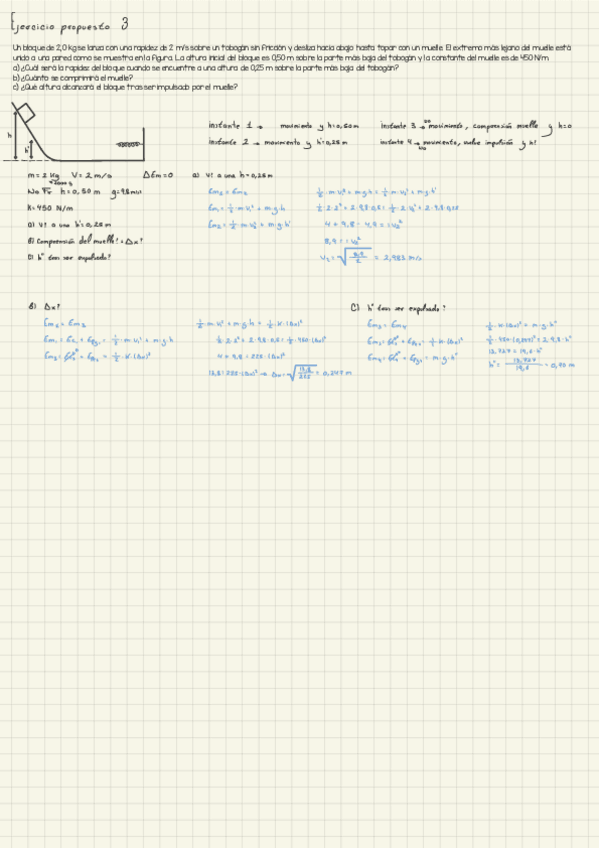 Ejercicio propuesto 3
Un bloque de 2,0 kg se lanza con una rapidez de 2 m/s sobre un tobogán sin fricción y desliza hacia abajo hasta topar con un muelle. El extremo más lejano del muelle está
unido a una pared como se muestra en la figura. La altura inicial del bloque es 0,50 m sobre la parte más baja del tobogán y la constante del muelle es de 450 N/m
a) ¿Cuál será la rapidez del bloque cuando se encuentre a una altura de 0,25 m sobre la parte más baja del tobogán?
b) ¿Cuánto se comprimirá el muelle?
c) ¿Qué altura alcanzará el bloque tras ser impulsado por el muelle?
h
h'
instante 1 → movimiento y h=0,50m
instante 2 → movimiento y h'=0,25m
instante 3 → movimiento, compresión muelle y h=0
instante 4 → movimiento, vuelve impulsión y h!
m = 2 kg V = 2 m/s ΔEm=0
No Fr h = 0,50 m g=9,8 m/s
K=450 N/m
a) V? a una h'=0,25m
b) Compresión del muelle? = Δx?
c) h" tras ser expulsado?
a) V? a una h=0,25m
Em₁ = Em₂
Em₁ = ½·m·V₁² + m·g·h
Em₂ = ½·m·V₂² + m·g·h'
½·m·V₁² + m·g·h = ½·m·V₂² + m·g·h'
½·2·2² + 2·9,8·0,5 = ½·2·V₂² + 2·9,8·0,25
4 + 9,8 - 4,9 = V₂²
8,9 = V₂²
V₂ = √ 8,9 = 2,983 m/s
b) Δx?
Em₁ = Em₃
½·m·V₁² + m·g·h = ½·K·(Δx)²
½·2·2² + 2·9,8·0,5 = ½·450·(Δx)²
4 + 9,8 = 225·(Δx)²
13,8 = 225·(Δx)² → Δx = √ 13,8/225 = 0,247 m
c) h" tras ser expulsado?
Em₃ = Em₄
½·K·(Δx)² = m·g·h"
½·450·(0,247)² = 2·9,8·h"
13,727 = 19,6·h"
h" = 13,727/19,6 = 0,70 m